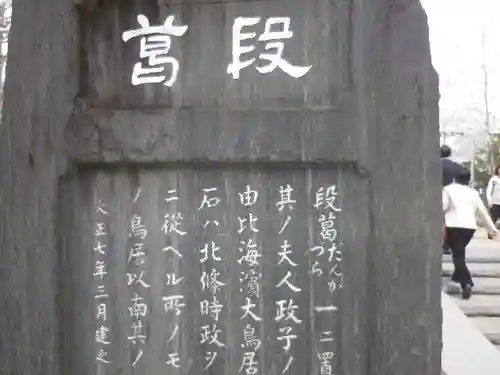 段葛
段葛 だんかづら 一ニ置
其ノ夫人政子ノ
由比海濱大鳥居
石ハ北條時政シ
ニ從ヘル所ノモ
ノ鳥居以南其ノ
大正七年三月建之